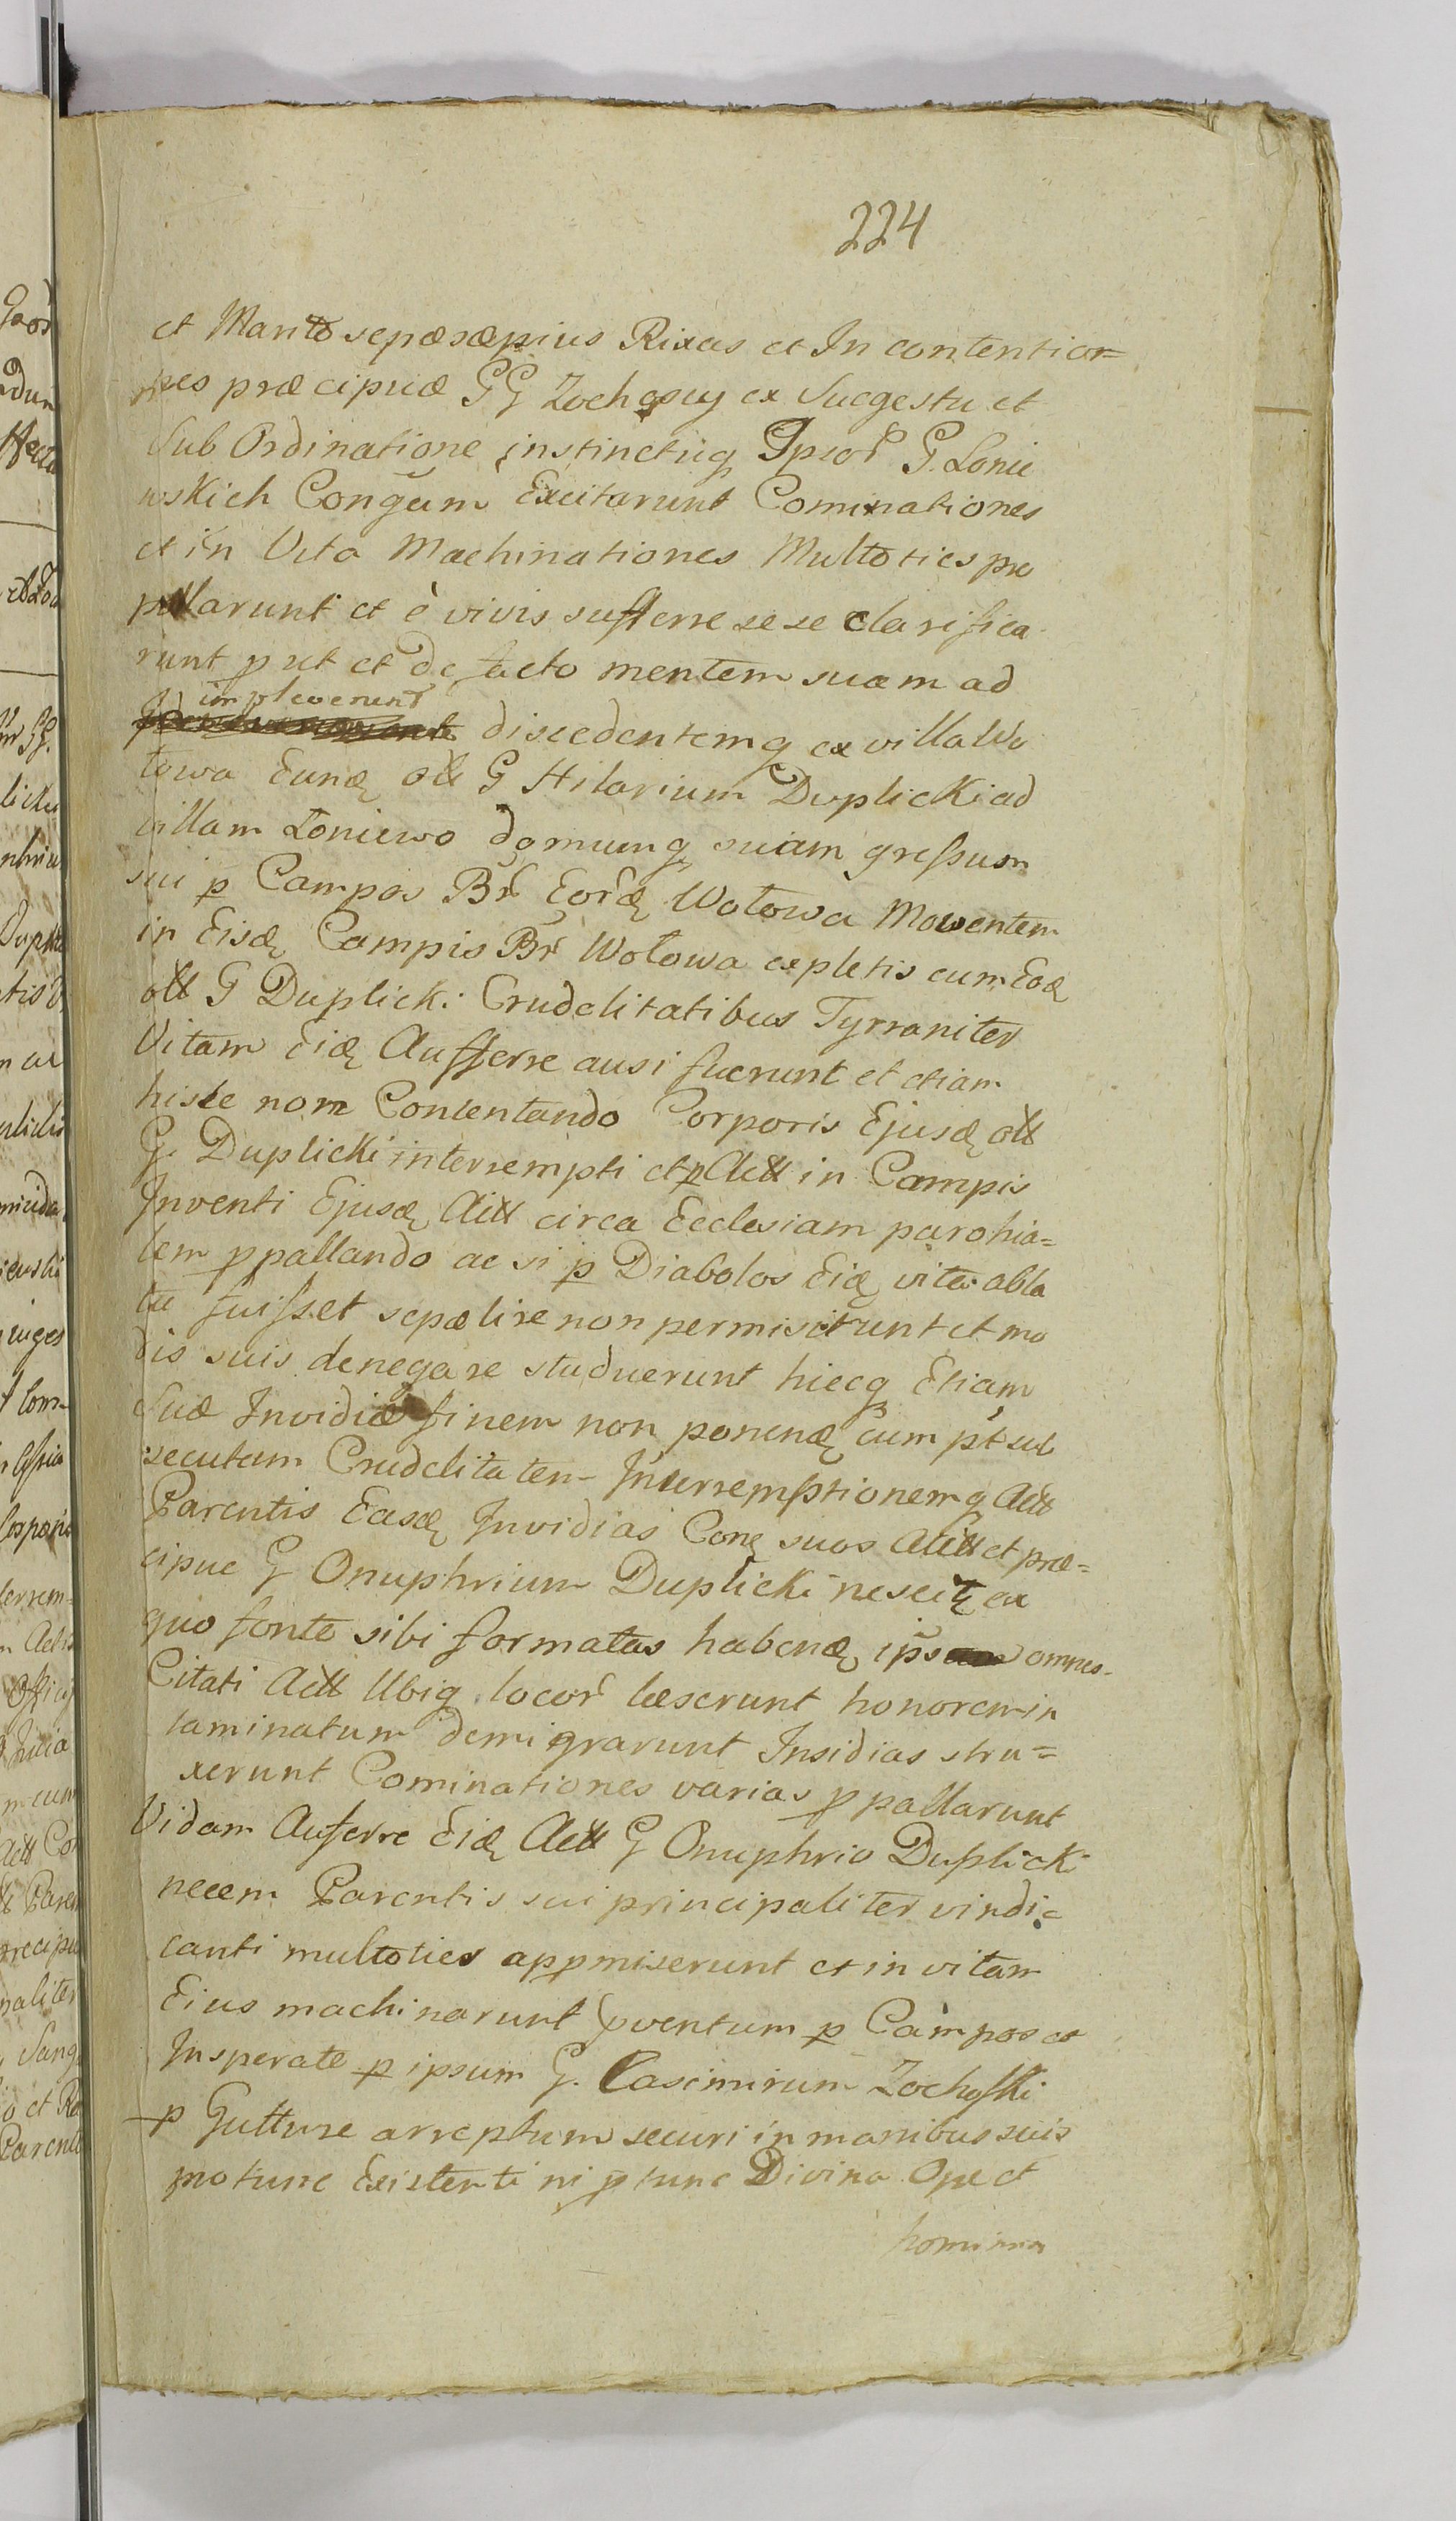 224
et Marito sepæ sæpius Rixas et In contention=
nes præcipuæ GG Zochoscy ex Sucgestu et
Sub Ordinatione instinctuq Ipsor G. Lonie
wskich Congũm Excitarunt Cominationes
et in Vita Machinationes Multoties pro
pallarunt et è vivis sufferre sese clarifica
runt put et de facto mentem suam ad
impleverunt
discedentemq ex villa Wo
towa Eundę oll G Hilarium Duplicki ad
villam Loniewo domumq suam gressum
sui p Campos Br Eordę Wotowa Moventem
in Eisdę Campis Br Wołowa expletis cum Eodę
oll G Duplicki Crudelitatibus Tyrraniter
Vitam Eidę Aufferre ausi fuerunt et etiam
hisce non Contentando Corporis Ejusdę oll
G. Duplicki interrempti et p Actt in Campis
Inventi Ejusdę Actt circa Ecclesiam parohia=
lem ppallando ac si p Diabolos Eidę vita abla
ta fuisset sepælire non permiserunt et mo
dis suis denegare studuerunt hiecq Etiam
Suæ Invidiæ finem non ponendę cum pt sub
secutam Crudelitatem Interremptionemq Actt
Parentis Easdę Invidias Conę suos Actt et præ=
cipue G Onuphrium Duplicki nescitę ex
quo fonte sibi formatas habendę ips omnes
Citati Actt Ubiq locor læserunt honorem in
taminatum demigrarunt Insidias stru=
xerunt Cominationes varias ppallarunt
Vidam Auferre Eidę Actt G Onuphrio Duplicki
necem Parentis sui principaliter vindi=
canti multoties appmiserunt et in vitam
Eius machinarunt pventum p Campos et
Insperate p ipsum G. Casimirum Zochoski
p Gutture arreptum securi in manibus suis
protunc Existenti ni ptunc Divina Ope et
homina